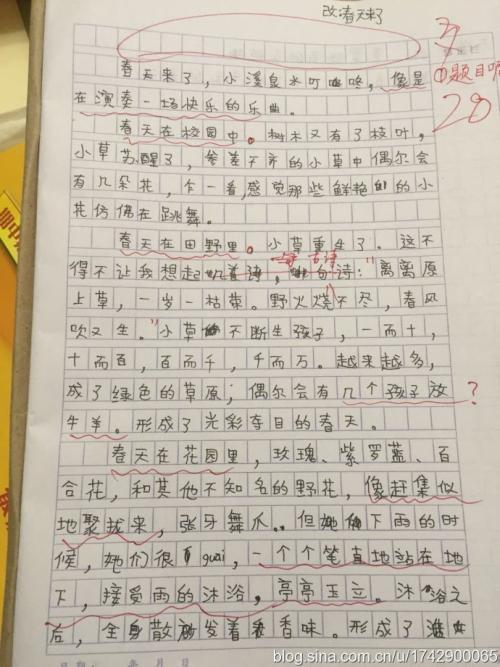 改:春天来了
春天来了,小溪泉水叮咚咚,像是
①题目呢
在演奏一场快乐的乐曲。
28
春天在校园中。树木又有了枝叶,
小草苏醒了,参差不齐的小草中偶尔会
有几朵花,乍一看,感觉那些鲜艳的的小
花仿佛在跳舞。
春天在田野里。小草重生了。这不
得不让我想起一首古诗:“离离原
上草,一岁一枯荣。野火烧不尽,春风
吹又生。”小草不断生孩子,一而十,
十而百,百而千,千而万。越来越多,
成了绿色的草原;偶尔会有几个孩子放
牛羊。形成了光彩夺目的春天。
?
春天在花园里,玫瑰、紫罗蓝、百
合花,和其他不知名的野花,像赶集似
地聚拢来,张牙舞爪。但她们下雨的时
候,她们很guai,一个个笔直地站在地
下,接受雨的沐浴,亭亭玉立。沐浴之
后,全身散发着香味。形成了
blog.sina.com.cn/u/1742900065